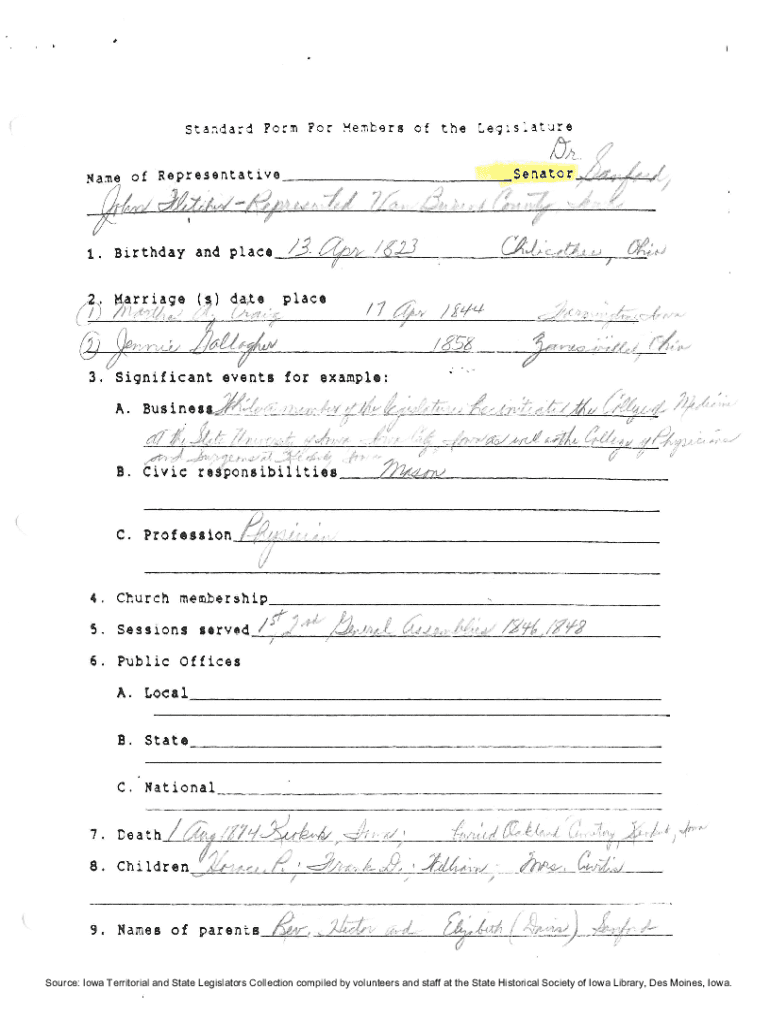 Standard Form For Members of the Legislature
Dr.
Name of Representative Senator Sanford,
John Fletcher - Represented Van Buren County, Iowa
1. Birthday and place 13. Apr 1823 Chilicothee, Ohio
2. Marriage (s) date place
(1) Martha A. Craig 17 Apr 1844 Farmington, Iowa
(2) Jennie Gallagher 1858 Zanesville, Ohio
3. Significant events for example:
A. Business While a member of the legislature he initiated the College of Medicine
at the State University of Iowa - Iowa City, Iowa as well as the College of Physicians
and Surgeons at Keokuk, Iowa
B. Civic responsibilities Mason
C. Profession Physician
4. Church membership
5. Sessions served 1st, 2nd General Assemblies 1846, 1848
6. Public Offices
A. Local
B. State
C. National
7. Death 1 Aug 1874 Keokuk, Iowa; buried Oakland Cemetery, Keokuk, Iowa
8. Children Horace P.; Frank D.; William; Mrs. Curtis
9. Names of parents Rev. Hector and Elizabeth (Davis) Sanford
Source: Iowa Territorial and State Legislators Collection compiled by volunteers and staff at the State Historical Society of Iowa Library, Des Moines, Iowa.